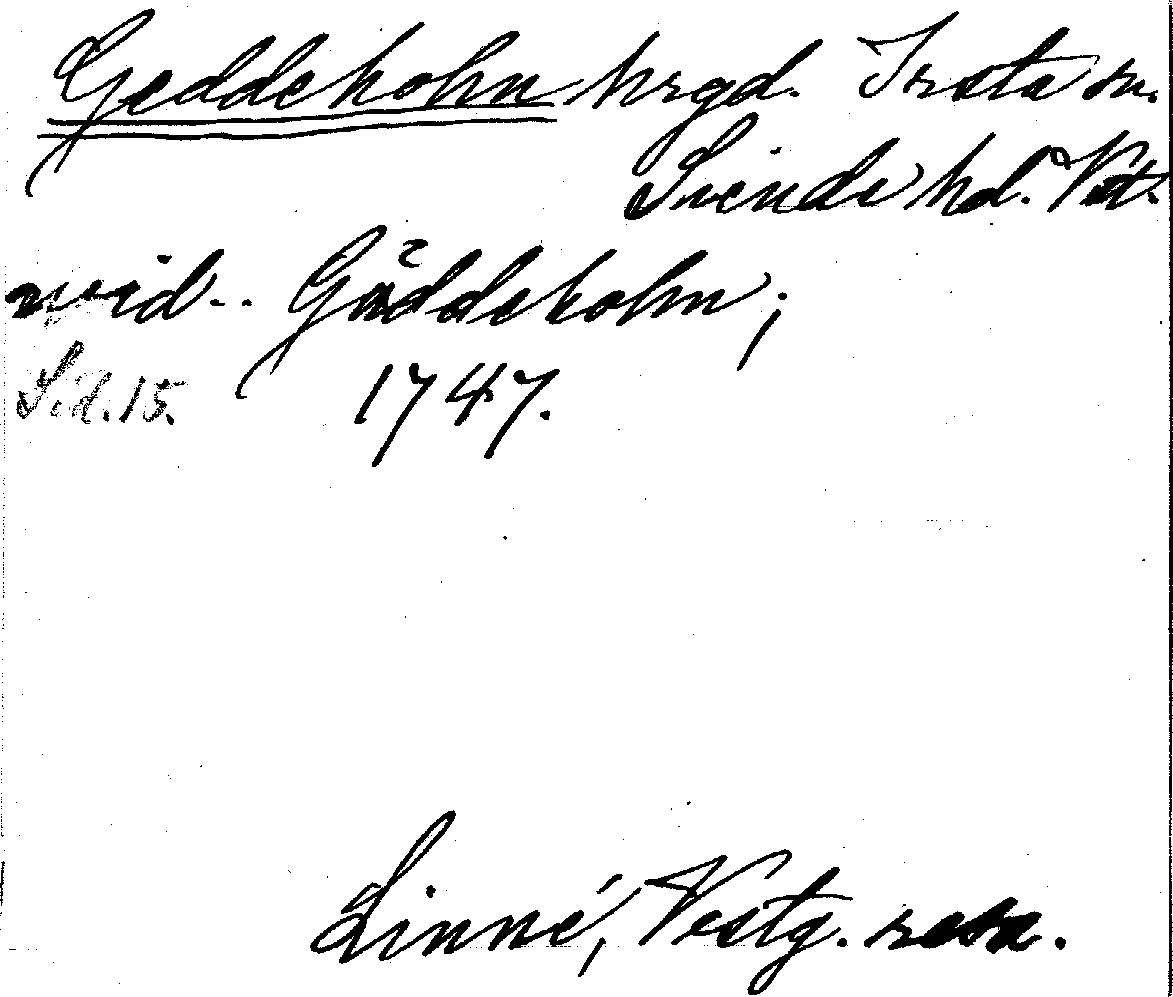 Geddeholm hrgd. Irsta sn.
Siende hd. Vst.
wid .. Gäddeholm;
Sid. 15. 1747.
Linné, Vestg. resa.